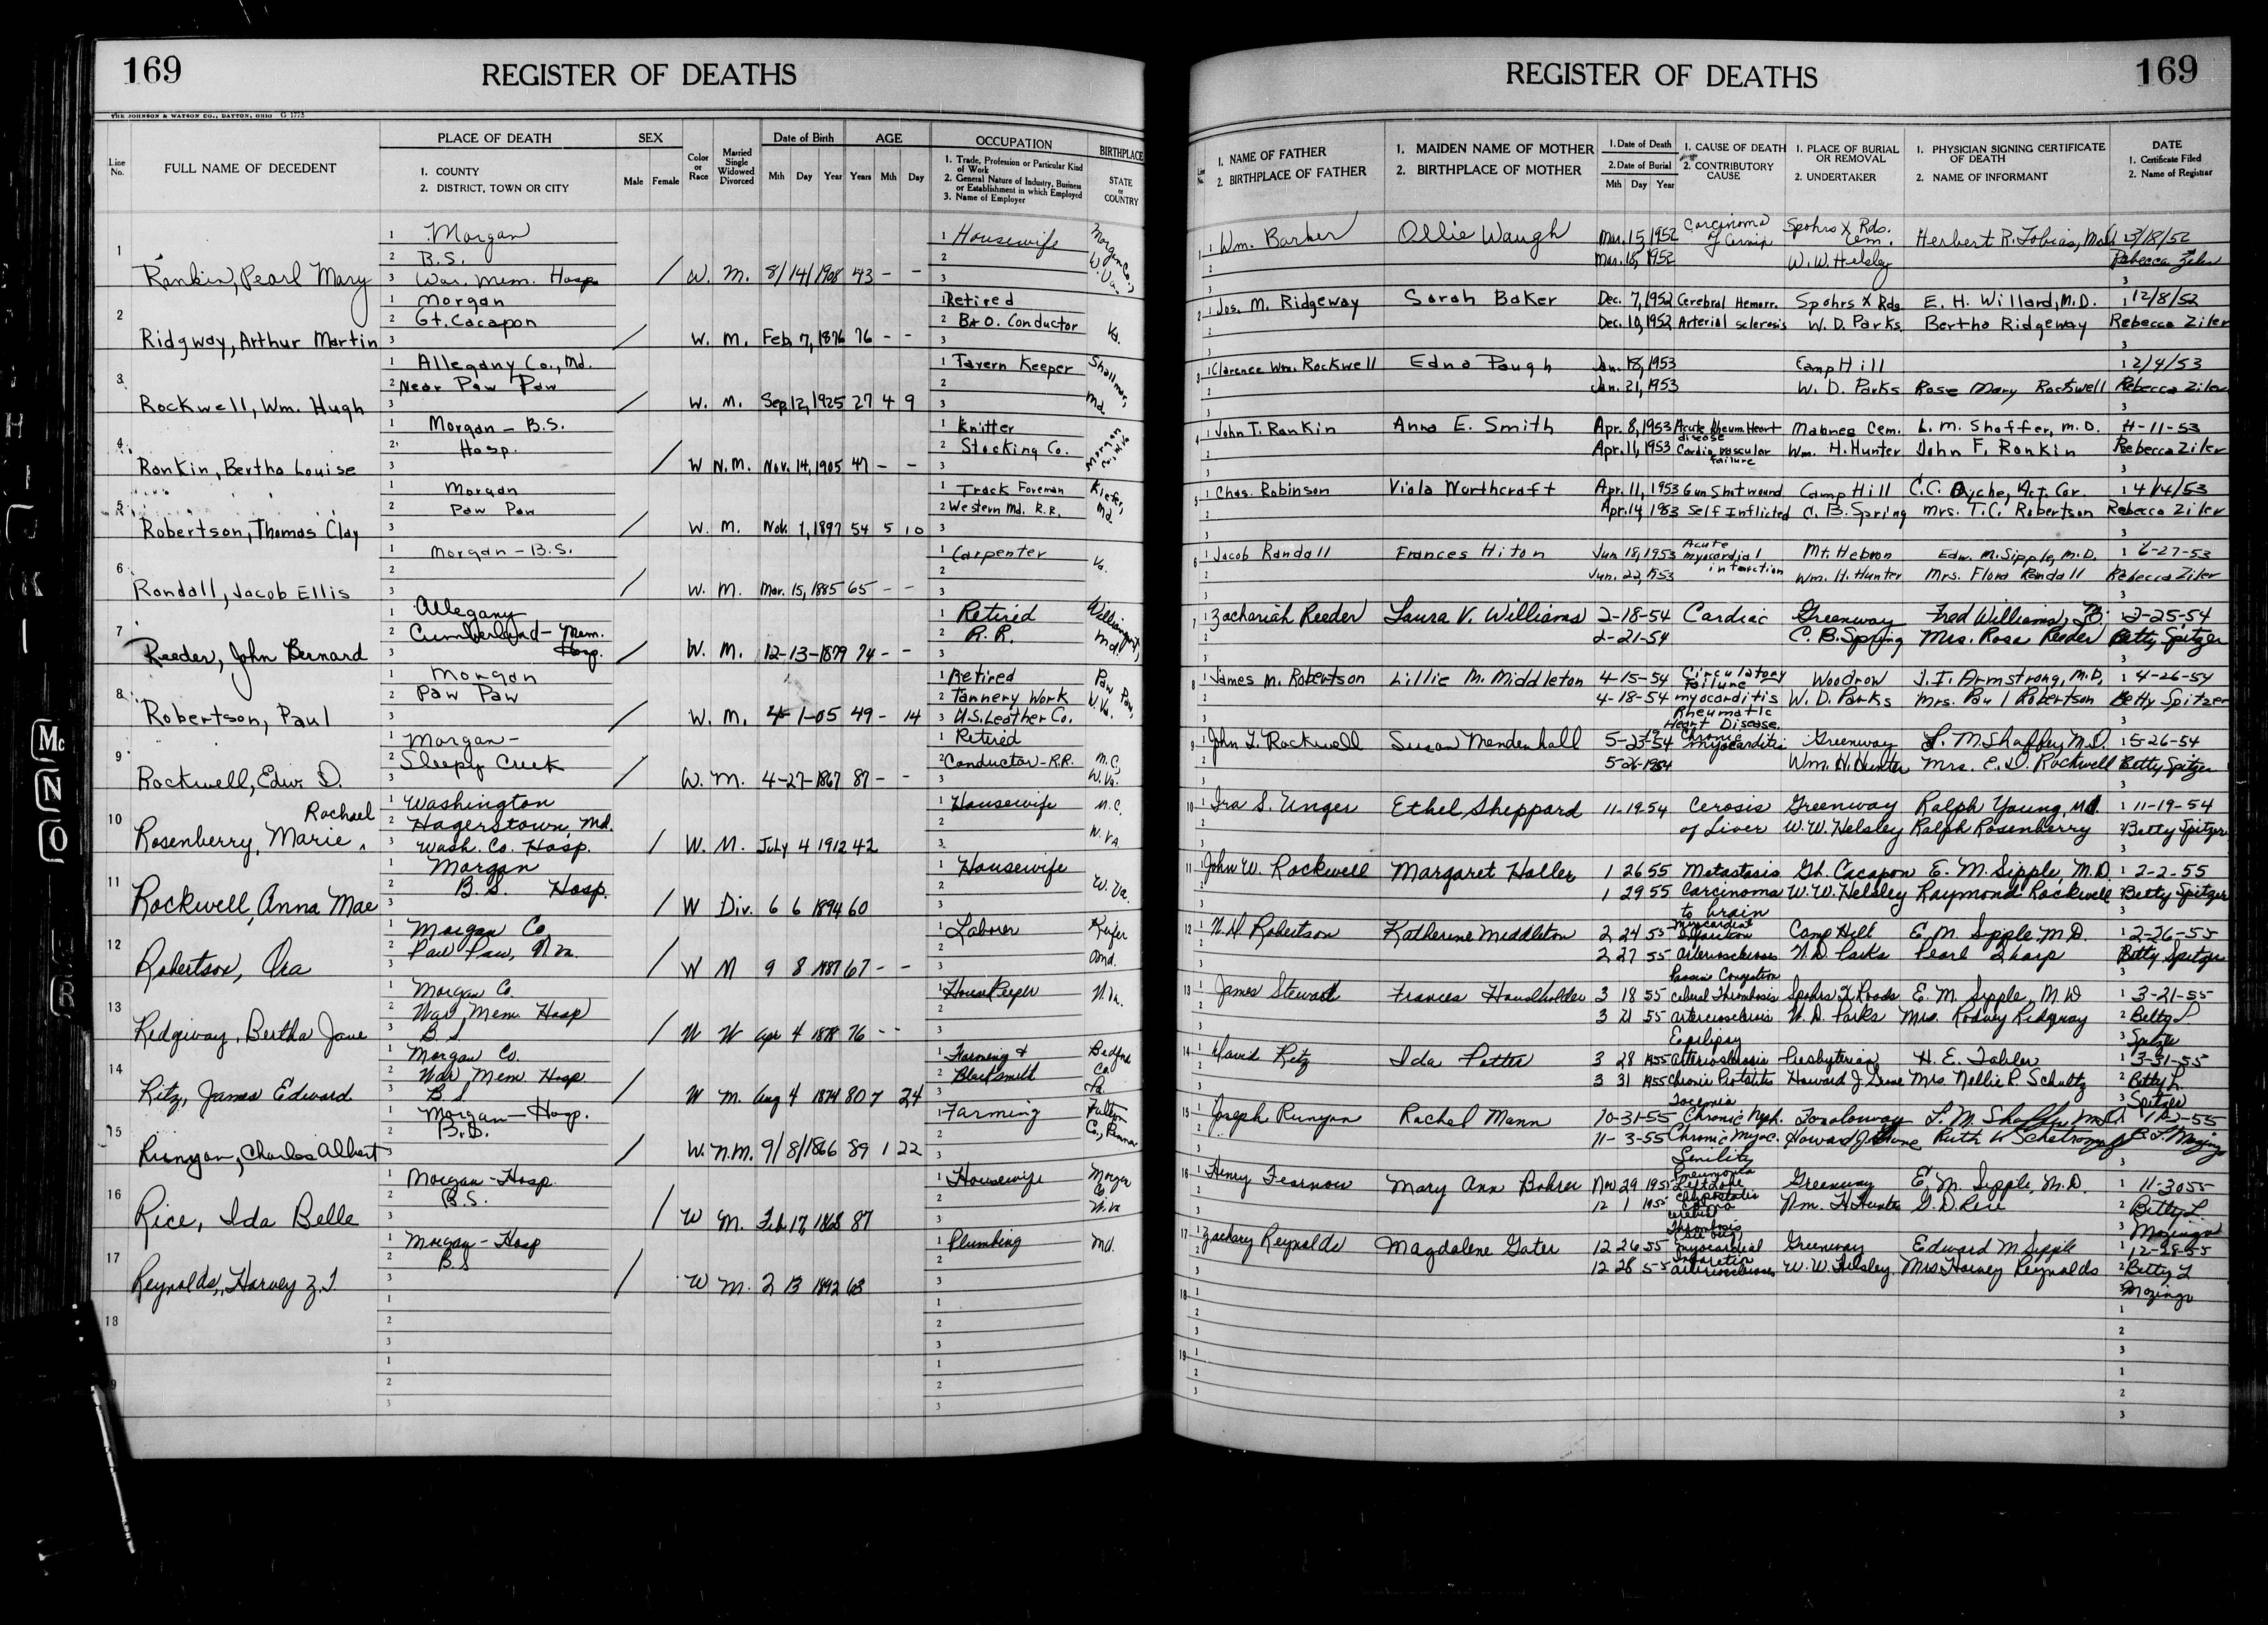 169
REGISTER OF DEATHS
THE JOHNSON & WATSON CO., DAYTON, OHIO G 1775
Line No.
FULL NAME OF DECEDENT
PLACE OF DEATH
1. COUNTY
2. DISTRICT, TOWN OR CITY
SEX
Male Female
Color or Race
Married Single Widowed Divorced
Date of Birth
Mth Day Year
AGE
Years Mth Day
OCCUPATION
1. Trade, Profession or Particular Kind of Work
2. General Nature of Industry, Business or Establishment in which Employed
3. Name of Employer
BIRTHPLACE
STATE or COUNTRY
1 Rankin, Pearl Mary / W. M. 8/14/1908 43 - -
1 Morgan
2 B.S.
3 War. Mem. Hosp.
1 Housewife
Morgan Co., W. Va.
2 Ridgway, Arthur Martin / W. M. Feb. 7, 1876 76 - -
1 Morgan
2 Gt. Cacapon
1 Retired
2 B&O. Conductor
Va.
3 Rockwell, Wm. Hugh / W. M. Sep. 12, 1925 27 4 9
1 Allegany Co., Md.
2 Near Paw Paw
1 Tavern Keeper
Shallmar, Md.
4 Rankin, Bertha Louise / W N.M. Nov. 14, 1905 47 - -
1 Morgan - B.S.
2 Hosp.
1 Knitter
2 Stocking Co.
Morgan Co.,
5 Robertson, Thomas Clay / W. M. Nov. 1, 1897 54 5 10
1 Morgan
2 Paw Paw
1 Track Foreman
2 Western Md. R.R.
Kiefer, Md.
6 Randall, Jacob Ellis / W. M. Mar. 15, 1885 65 - -
1 Morgan - B.S.
1 Carpenter
Va.
7 Reeder, John Bernard / W. M. 12-13-1879 74 - -
1 Allegany
2 Cumberland - Mem. Hosp.
1 Retired
2 R.R.
Williamsport, Md.
8 Robertson, Paul / W. M. 4-1-05 49 - 14
1 Morgan
2 Paw Paw
1 Retired
2 Tannery Work
3 U.S. Leather Co.
Paw Paw, W. Va.
9 Rockwell, Edw. D. / W. M. 4-27-1867 87 - -
1 Morgan -
2 Sleepy Creek
1 Retired
2 Conductor - R.R.
M.C., W. Va.
10 Rosenberry, Marie Rachael / W. M. July 4 1912 42
1 Washington
2 Hagerstown, Md.
3 Wash. Co. Hosp.
1 Housewife
M.C. W. VA
11 Rockwell, Anna Mae / W Div. 6 6 1894 60
1 Morgan
2 B.S. Hosp.
1 Housewife
W. Va.
12 Robertson, Ora / W M 9 8 1887 67 - -
1 Morgan Co
2 Paw Paw, W. Va.
1 Laborer
Keifer
13 Ridgway, Bertha Jane / W W Apr 4 1878 76 - -
1 Morgan Co.
2 War Mem. Hosp
3 B S
1 HouseKeeper
W. Va.
14 Ritz, James Edward / W M. Aug 4 1874 80 7 24
1 Morgan Co.
2 War Mem Hosp.
3 B S
1 Farming &
2 Blacksmith
Bedford Co. Pa.
15 Runyan, Charles Albert / W. N.M. 9/8/1866 89 1 22
1 Morgan - Hosp.
2 B.S.
1 Farming
Fulton Co., Penna
16 Rice, Ida Belle / W M. Feb. 17, 1868 87
1 Morgan - Hosp.
2 B.S.
1 Housewife
Morgan Co W. Va
17 Reynolds, Harvey Z. T. / W M. 2 13 1892 63
1 Morgan - Hosp
2 B S
1 Plumbing
Md.
18
REGISTER OF DEATHS
169
Line No.
1. NAME OF FATHER
2. BIRTHPLACE OF FATHER
1. MAIDEN NAME OF MOTHER
2. BIRTHPLACE OF MOTHER
1. Date of Death
2. Date of Burial
Mth Day Year
1. CAUSE OF DEATH
2. CONTRIBUTORY CAUSE
1. PLACE OF BURIAL OR REMOVAL
2. UNDERTAKER
1. PHYSICIAN SIGNING CERTIFICATE OF DEATH
2. NAME OF INFORMANT
DATE
1. Certificate Filed
2. Name of Registrar
1 Wm. Barker Ollie Waugh Mar. 15, 1952 Carcinoma of Cervix Spohrs X Rds. Cem. Herbert R. Tobias, M.D. 3/18/52
Mar. 18, 1952 W. W. Helsley Rebecca Ziler
2 Jos. M. Ridgeway Sarah Baker Dec. 7, 1952 Cerebral Hemorr. Spohrs X Rds. E. H. Willard, M.D. 12/8/52
Dec. 10, 1952 Arterial sclerosis W. D. Parks Bertha Ridgeway Rebecca Ziler
3 Clarence Wm. Rockwell Edna Paugh Jan. 18, 1953 Camp Hill 2/4/53
Jan. 21, 1953 W. D. Parks Rose Mary Rockwell Rebecca Ziler
4 John T. Rankin Anna E. Smith Apr. 8, 1953 Acute Rheum. Heart disease Cem. L. M. Shaffer, M.D. 4-11-53
Apr. 11, 1953 Cardio vascular failure Wm. H. Hunter John F. Rankin Rebecca Ziler
5 Chas. Robinson Viola Northcraft Apr. 11, 1953 Gun Shot wound Camp Hill C. C. Dyche, Act. Cor. 4/14/53
Apr. 14, 1953 Self Inflicted C. B. Spring Mrs. T. C. Robertson Rebecca Ziler
6 Jacob Randall Frances Hiton Jun. 18, 1953 Acute myocardial infarction Mt. Hebron Edw. M. Sipple, M.D. 6-27-53
Jun. 22, 1953 Wm. H. Hunter Mrs. Flora Randall Rebecca Ziler
7 Zachariah Reeder Laura V. Williams 2-18-54 Cardiac Greenway Fred Williams, 2-25-54
2-21-54 C. B. Spring Mrs. Rose Reeder Betty Spitzer
8 James M. Robertson Lillie M. Middleton 4-15-54 Circulatory failure Woodrow J. I. Armstrong, M.D. 4-26-54
4-18-54 myocarditis Rheumatic Heart Disease W. D. Parks Mrs. Paul Robertson Betty Spitzer
9 John L. Rockwell Susan Mendenhall 5-23-54 Chronic myocarditis Greenway L. M. Shaffer, M.D. 5-26-54
5-26-1954 Wm. H. Hunter Mrs. E. D. Rockwell Betty Spitzer
10 Ira S. Unger Ethel Sheppard 11-19-54 Cerosis Greenway Ralph Young, M.D. 11-19-54
of Liver W. W. Helsley Ralph Rosenberry Betty Spitzer
11 John W. Rockwell Margaret Haller 1 26 55 Metastasis Gt. Cacapon E. M. Sipple, M.D. 2-2-55
1 29 55 Carcinoma to brain W. W. Helsley Raymond Rockwell Betty Spitzer
12 Robertson Katherine Middleton 2 24 55 Myocardial Camp Hill E. M. Sipple M.D. 2-26-55
2 27 55 arteriosclerosis W. D. Parks Pearl Sharp Betty Spitzer
13 James Steward Frances Householder 3 18 55 Passive Congestion Cerebral Thrombosis Spohrs X Roads E. M. Sipple, M.D 3-21-55
3 21 55 arteriosclerosis W. D. Parks Mrs. Rodney Ridgway Betty L. Spitzer
14 David Ritz Ida Potter 3 28 1955 Epilipsy Arteriosclerosis Presbyterian H. E. Tabler 3-31-55
3 31 1955 Chronic Prostatitis Howard J. Mrs. Nellie R. Schultz Betty L. Spitzer
15 Joseph Runyan Rachel Mann 10-31-55 Toxemia Chronic Neph. Tonoloway L. M. Shaffer M.D. 11-2-55
11-3-55 Chronic Myoc. Senility Howard J. Ruth W. B. L. Mozingo
16 Henry Fearnow Mary Ann Bohrer Nov 29 1955 Pneumonia Left Lobe Greenway E. M. Sipple, M.D. 11-30-55
12 1 1955 Cerebral Thrombosis Wm. H. Hunter G. D. Rice Betty L Mozingo
17 Zachary Reynolds Magdalene Gater 12 26 55 myocardial infarction Greenway Edward M. Sipple 12-28-55
12 28 55 arteriosclerosis W. W. Helsley Mrs Harvey Reynolds Betty L Mozingo
18
19